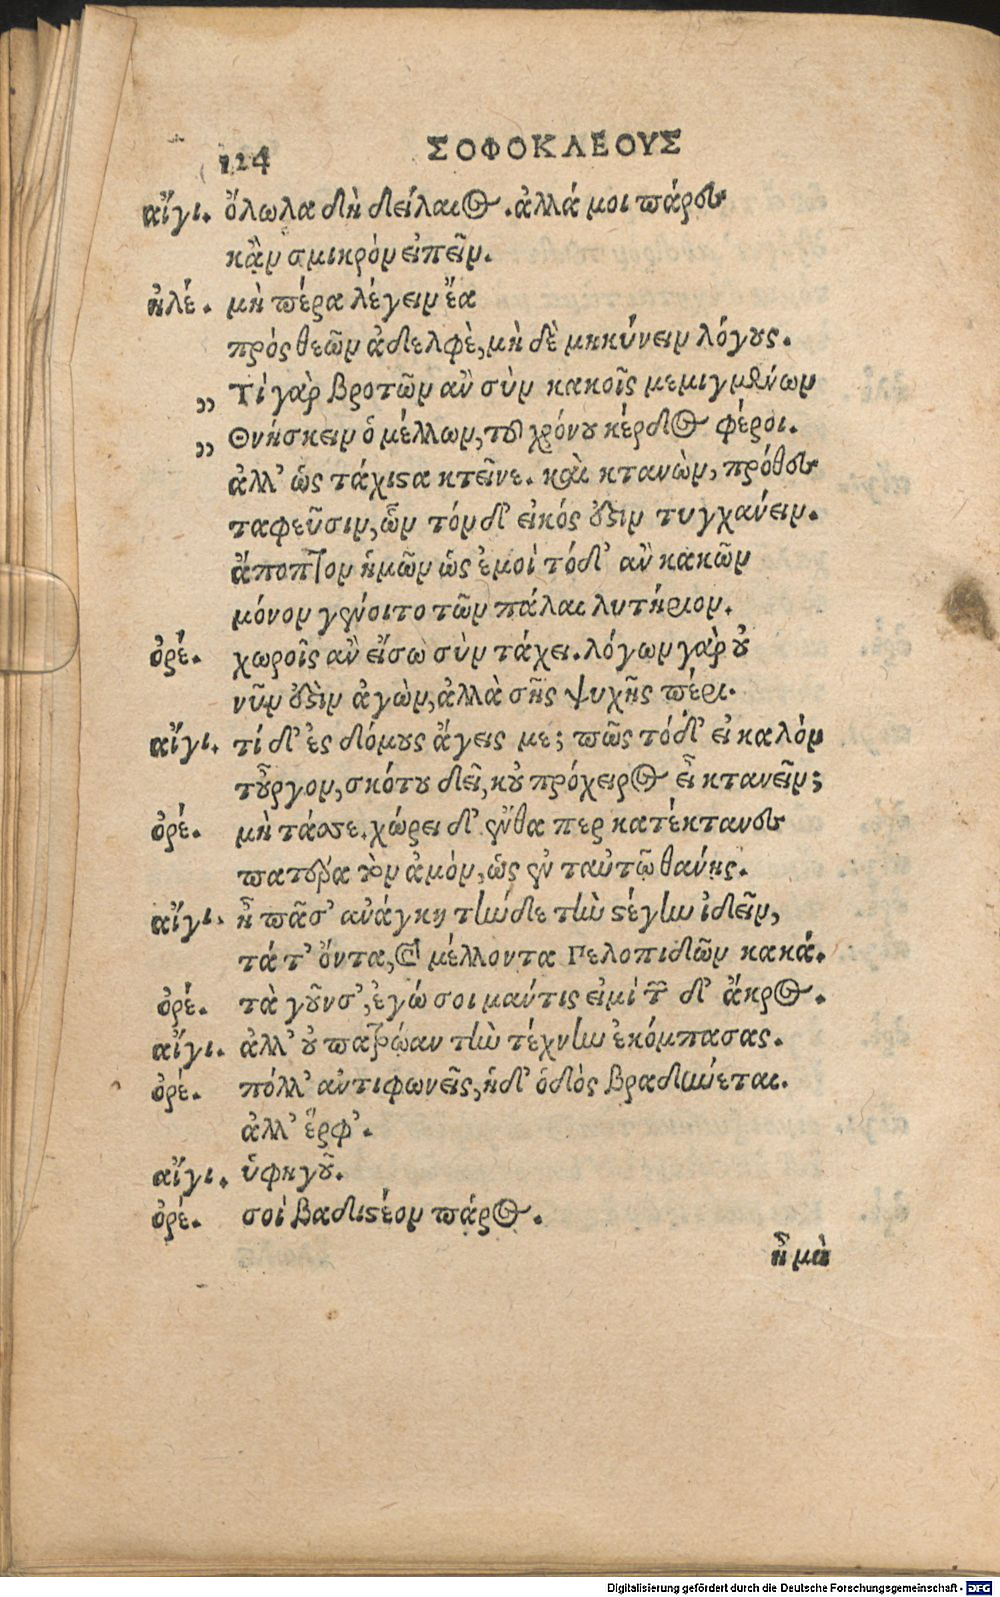 124 ΣΟΦΟΚΛΕΟΥΣ
αἴγι. ὄλωλα δὴ δείλαιος. ἀλλά μοι πάρες
κἂν σμικρὸν εἰπεῖν.
ἠλέ. μὴ πέρα λέγειν ἔα
πρὸς θεῶν ἀδελφὲ, μὴ δὲ μηκύνειν λόγους.
„ Τί γὰρ βροτῶν ἂν σὺν κακοῖς μεμιγμένων
„ Θνήσκειν ὁ μέλλων, τοῦ χρόνου κέρδος φέροι.
ἀλλ' ὡς τάχιστα κτεῖνε. καὶ κτανὼν, πρόθες
ταφεῦσιν, ὧν τόνδ' εἰκός ὀξιν τυγχάνειν.
ἄποπτον ἡμῶν ὡς ἐμοὶ τόδ' ἂν κακῶν
μόνον γένοιτο τῶν πάλαι λυτήριον.
ὀρέ. χωροῖς ἂν εἴσω σὺν τάχει. λόγων γὰρ οὐ
νῦν ὀξὶν ἀγὼν, ἀλλὰ σῆς ψυχῆς πέρι.
αἴγι. τί δ' ἐς δόμους ἄγεις με; πῶς τόδ' εἰ καλὸν
τοὖργον, σκότου δεῖ, κοὐ πρόχειρος εἶ κτανεῖν;
ὀρέ. μὴ τάσσε. χώρει δ' ἔνθα περ κατέκτανες
πατέρα τὸν ἀμὸν, ὡς ἐν ταὐτῷ θάνῃς.
αἴγι. ἦ πᾶσ' ἀνάγκη τήνδε τὴν στέγην ἰδεῖν,
τά τ' ὄντα, καὶ μέλλοντα Πελοπιδῶν κακά.
ὀρέ. τὰ γοῦν σ', ἐγώ σοι μάντις εἰμί τῶν δ' ἄκρος.
αἴγι. ἀλλ' οὐ πατρῴαν τὴν τέχνην ἐκόμπασας.
ὀρέ. πόλλ' ἀντιφωνεῖς, ἡδ' ὁδὸς βραδύνεται.
ἀλλ' ἕρφ'.
αἴγι. ὑφηγοῦ.
ὀρέ. σοί βαδιστέον πάρος.
ἦ μὴ
Digitalisierung gefördert durch die Deutsche Forschungsgemeinschaft - DFG